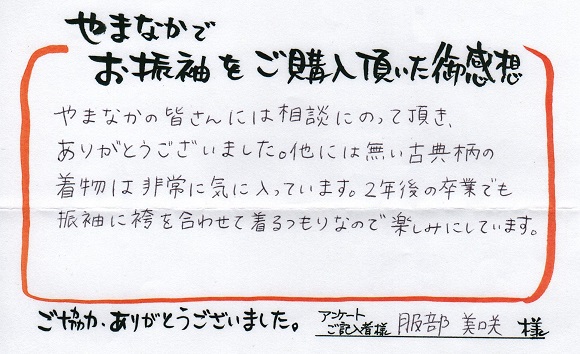 やまなかで
お振袖をご購入頂いた御感想
やまなかの皆さんには相談にのって頂き、
ありがとうございました。他には無い古典柄の
着物は非常に気に入っています。2年後の卒業でも
振袖に袴を合わせて着るつもりなので楽しみにしています。
ご協力、ありがとうございました。
アンケート
ご記入者様 服部 美咲 様